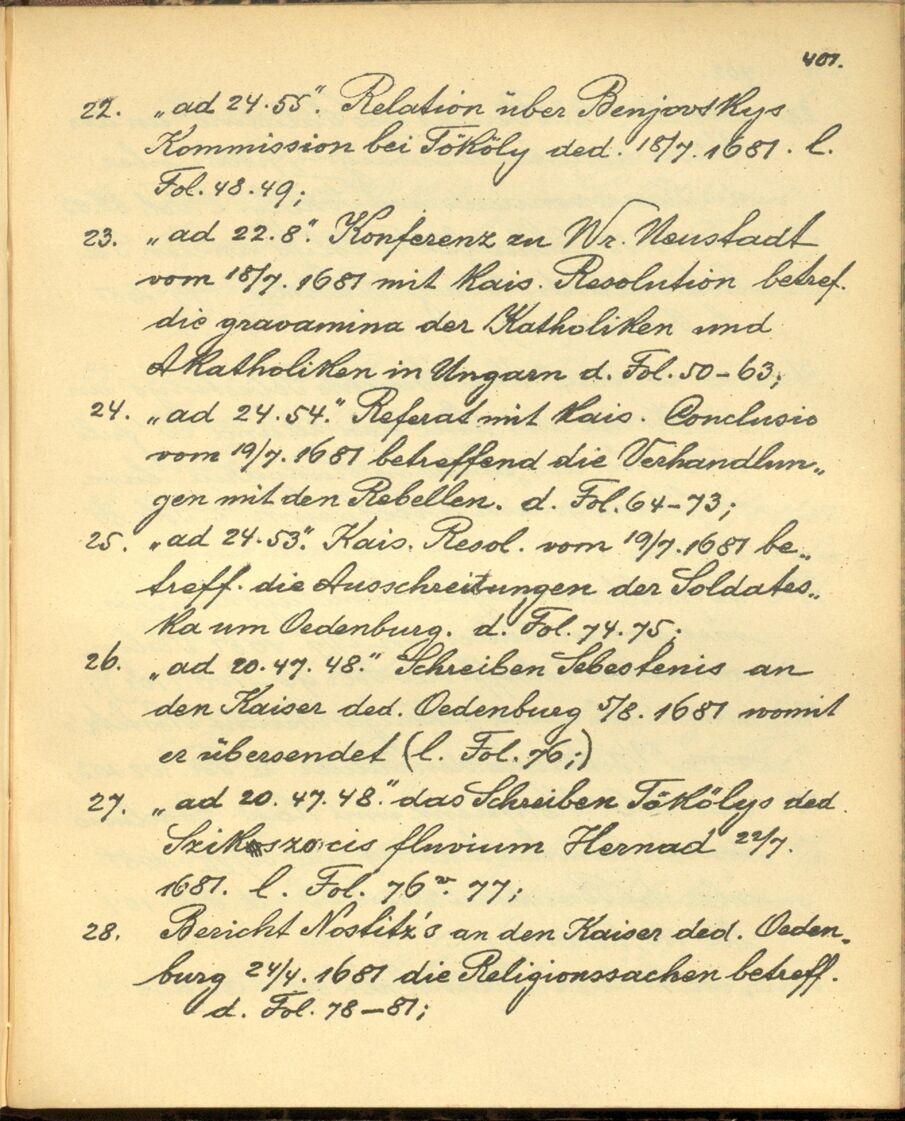 401.
22. „ad 24.55". Relation über Benjovskys
Kommission bei Tököly ded. 18/7. 1681. l.
Fol. 48.49;
23. „ad 22.8". Konferenz zu Wr. Neustadt
vom 18/7. 1681 mit Kais. Resolution betref.
die gravamina der Katholiken und
Akatholiken in Ungarn d. Fol. 50-63;
24. „ad 24.54." Referat mit Kais. Conclusio
vom 19/7. 1681 betreffend die Verhandlun„
gen mit den Rebellen. d. Fol. 64-73;
25. „ad 24.53". Kais. Resol. vom 19/7. 1681 be„
treff. die Ausschreitungen der Soldates„
ka um Oedenburg. d. Fol. 74.75;
26. „ad 20.47.48." Schreiben Sebestenis an
den Kaiser ded. Oedenburg 5/8. 1681 womit
er übersendet (l. Fol. 76;)
27. „ad 20.47.48." das Schreiben Tökölys ded.
fluvium Hernad 22/7.
1681. l. Fol. 76v. 77;
28. Bericht Nostitz's an den Kaiser ded. Oeden„
burg 24/4. 1681 die Religionssachen betreff.
d. Fol. 78-81;